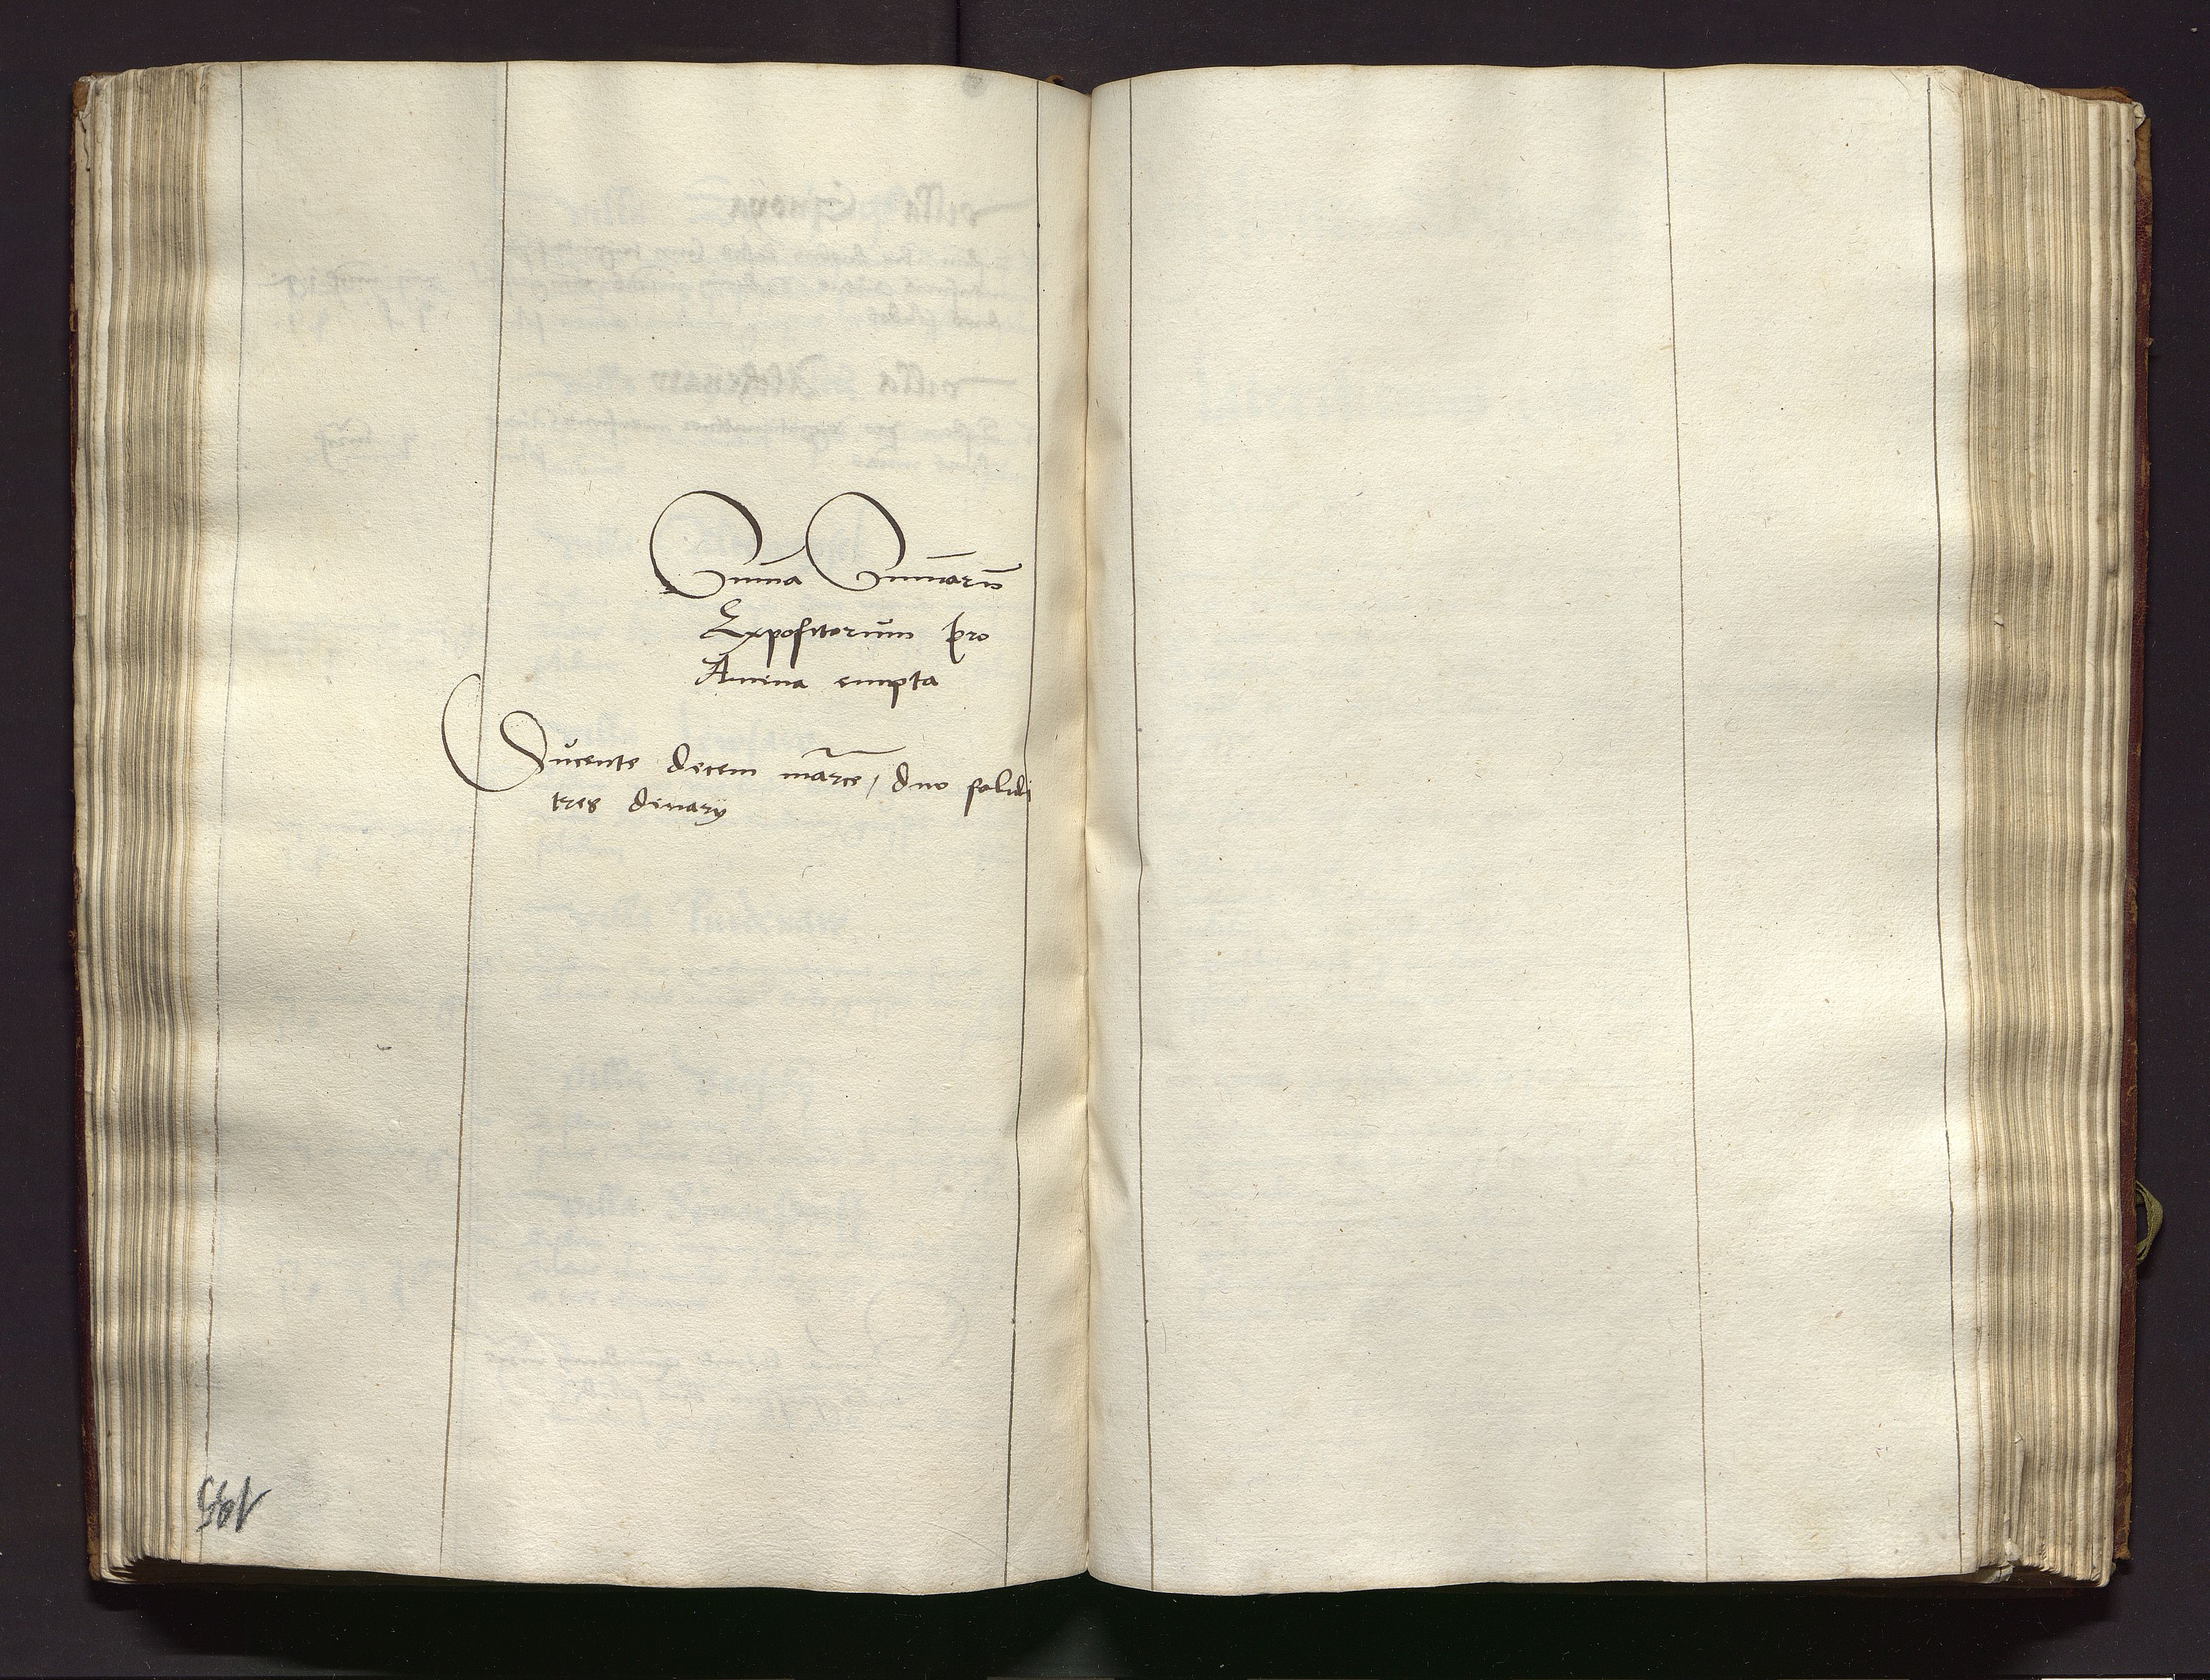 Suma Sumarū
Expositorum pro
Avena empta
Ducente decem marce, duo solidi
tres denarÿ
195